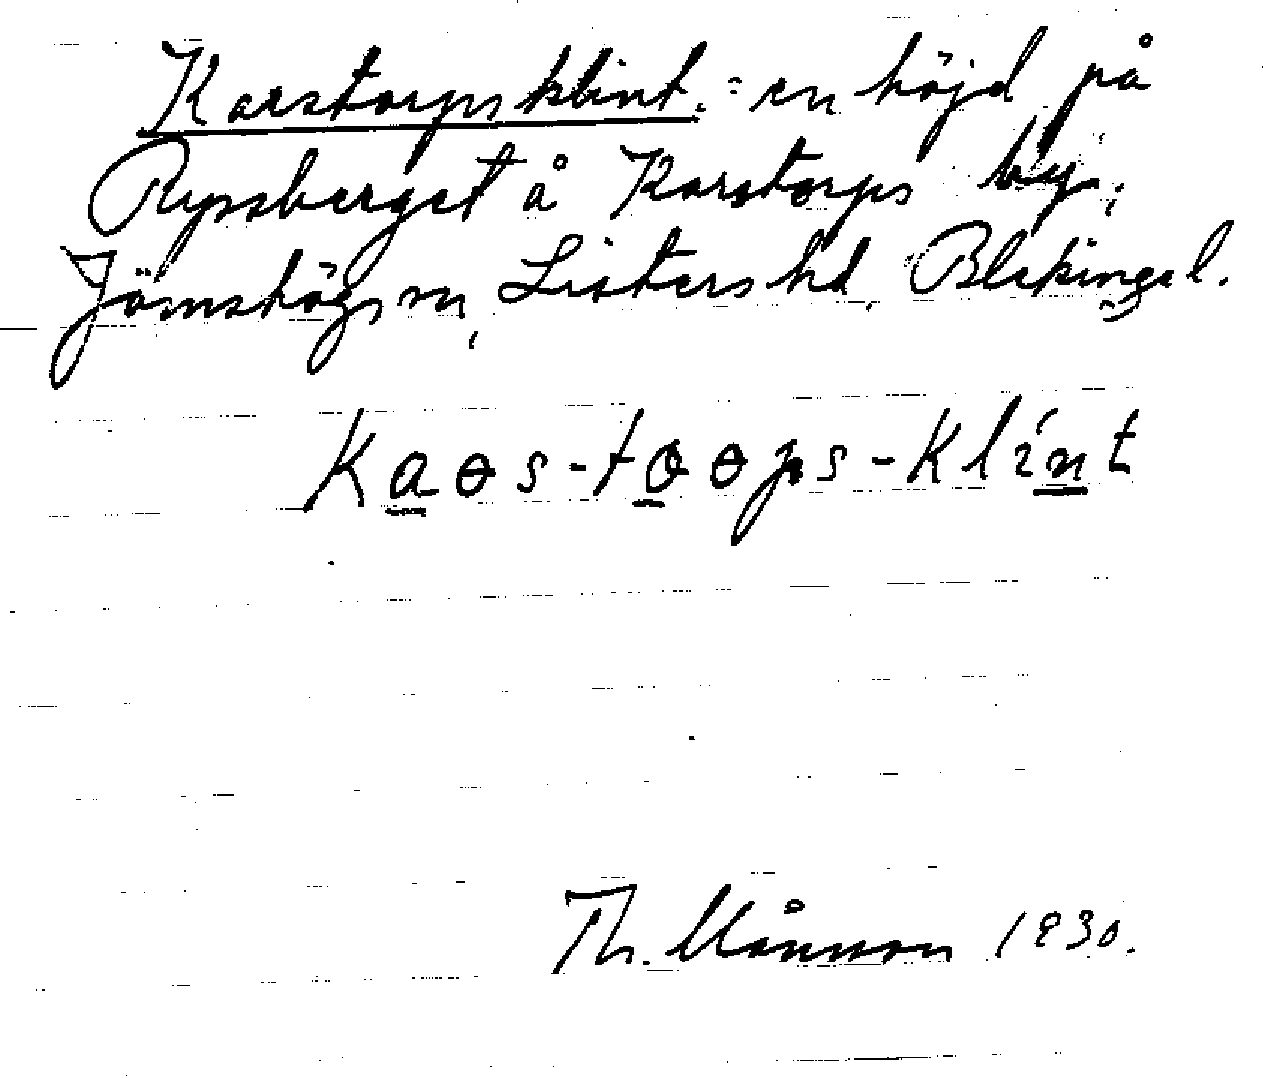 Karstorpsklint. = en höjd på
Ryssberget å Karstorps by,
Jämshögs sn, Listers hd. Blekinge l.
Kaɵs-toɵps-klínt
Th. Månsson 1930.